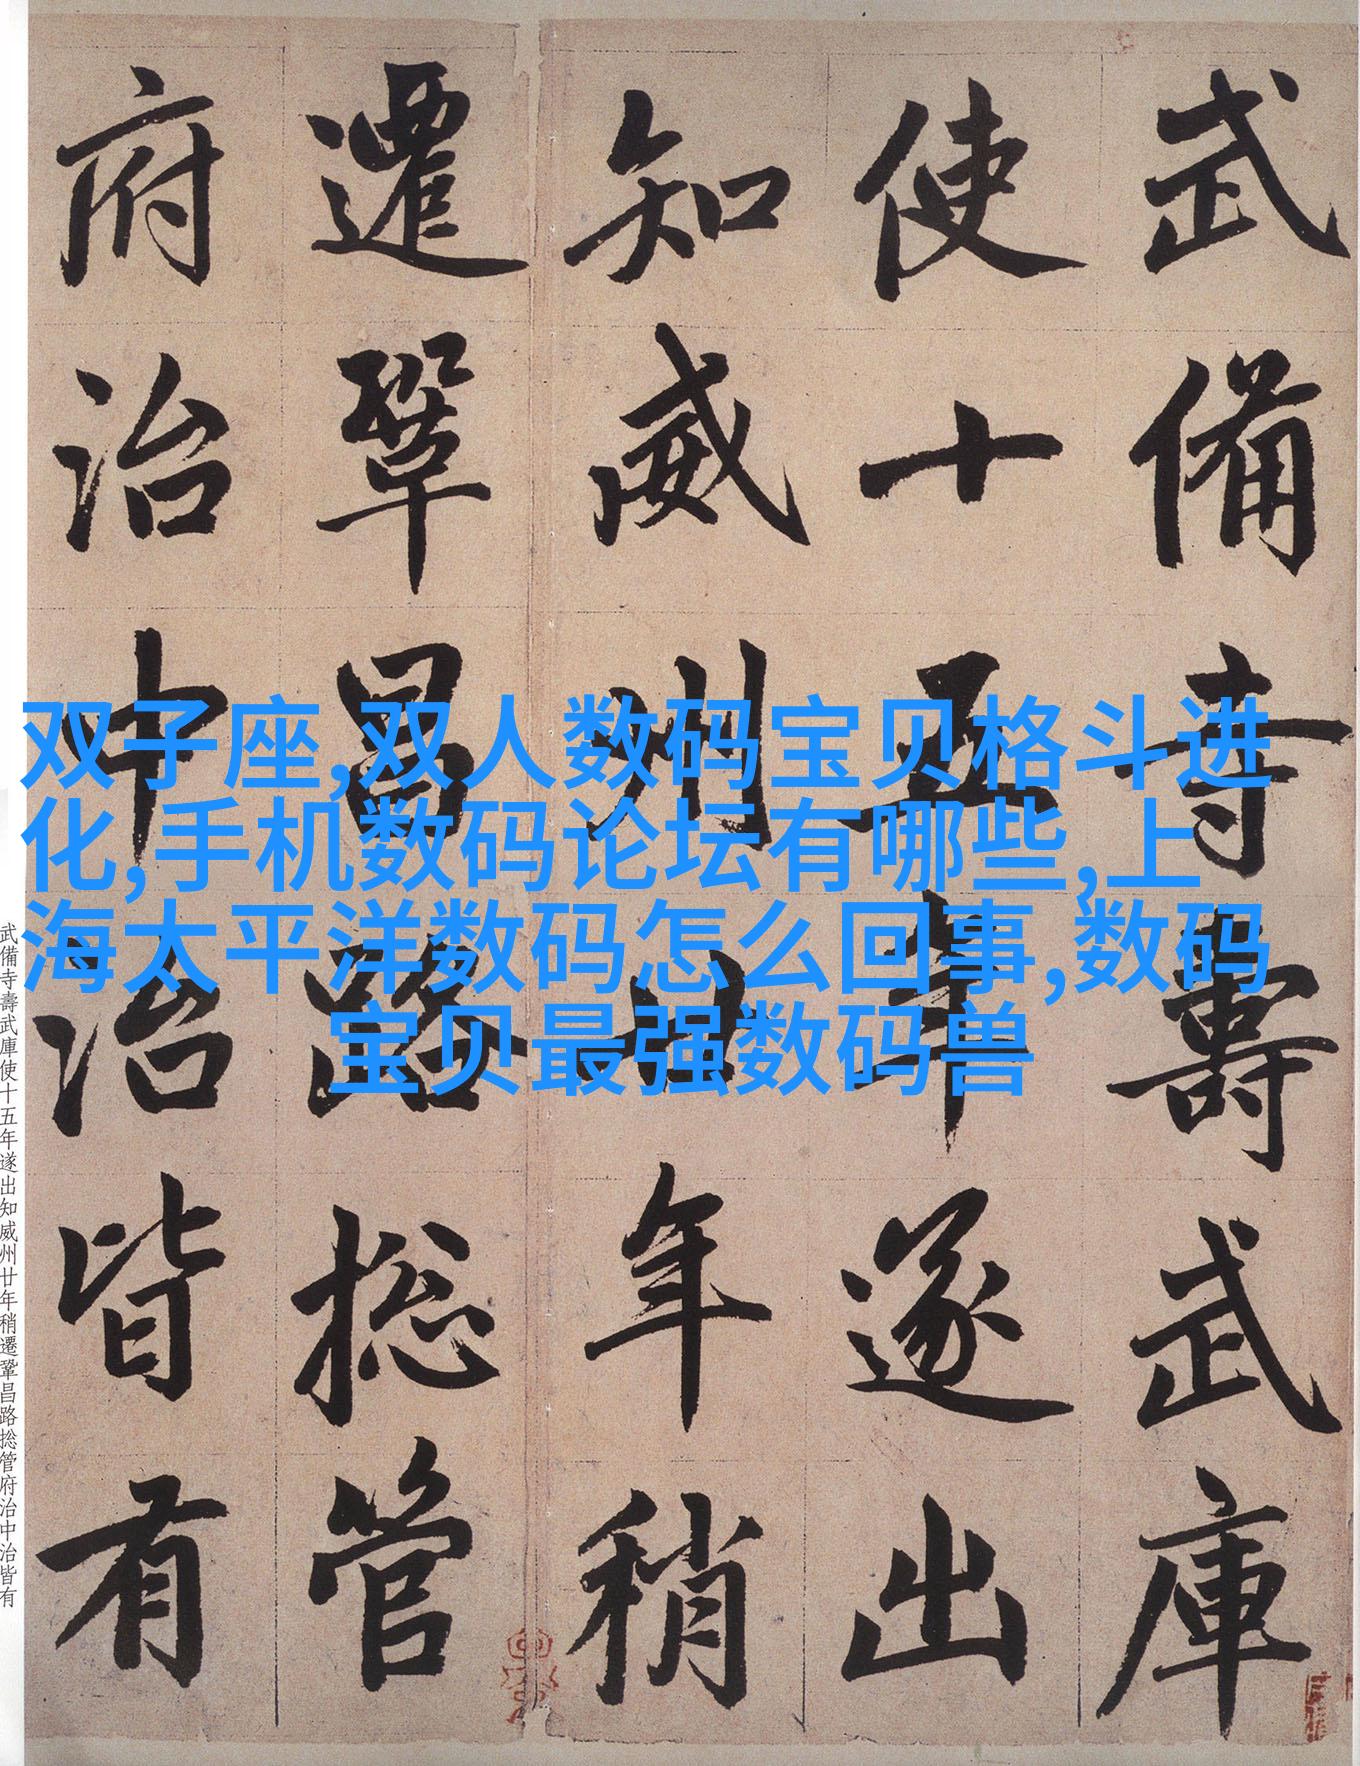 武備寺壽武庫
使十五年遂出
知威州廿年稍
遷鞏昌路捴管
府治中治皆有
双子座,双人数码宝贝格斗进
化,手机数码论坛有哪些,上
海太平洋数码怎么回事,数码
宝贝最强数码兽
武備寺壽武庫使十五年遂出知威州廿年稍遷鞏昌路捴管府治中治皆有